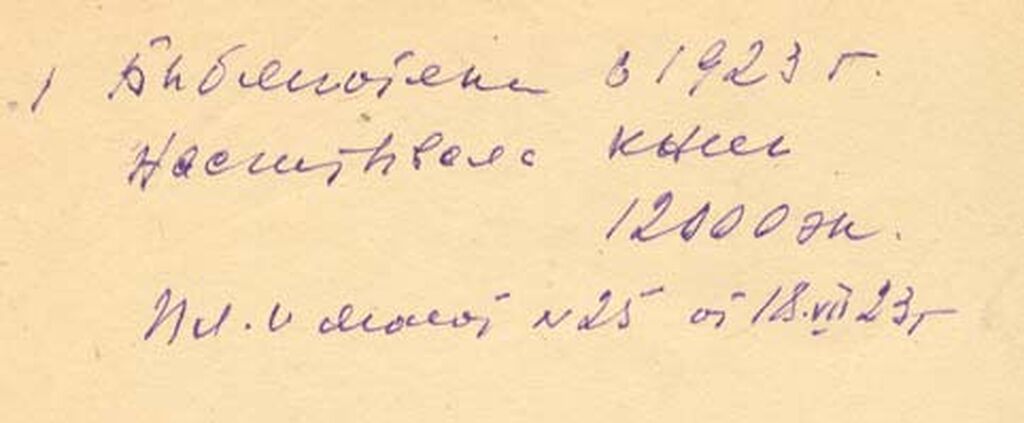 1 Библиотека в 1923 г.
Насчитывала книг
12000 эк.
Пл. и молот N 25 от 18.VII 23 г